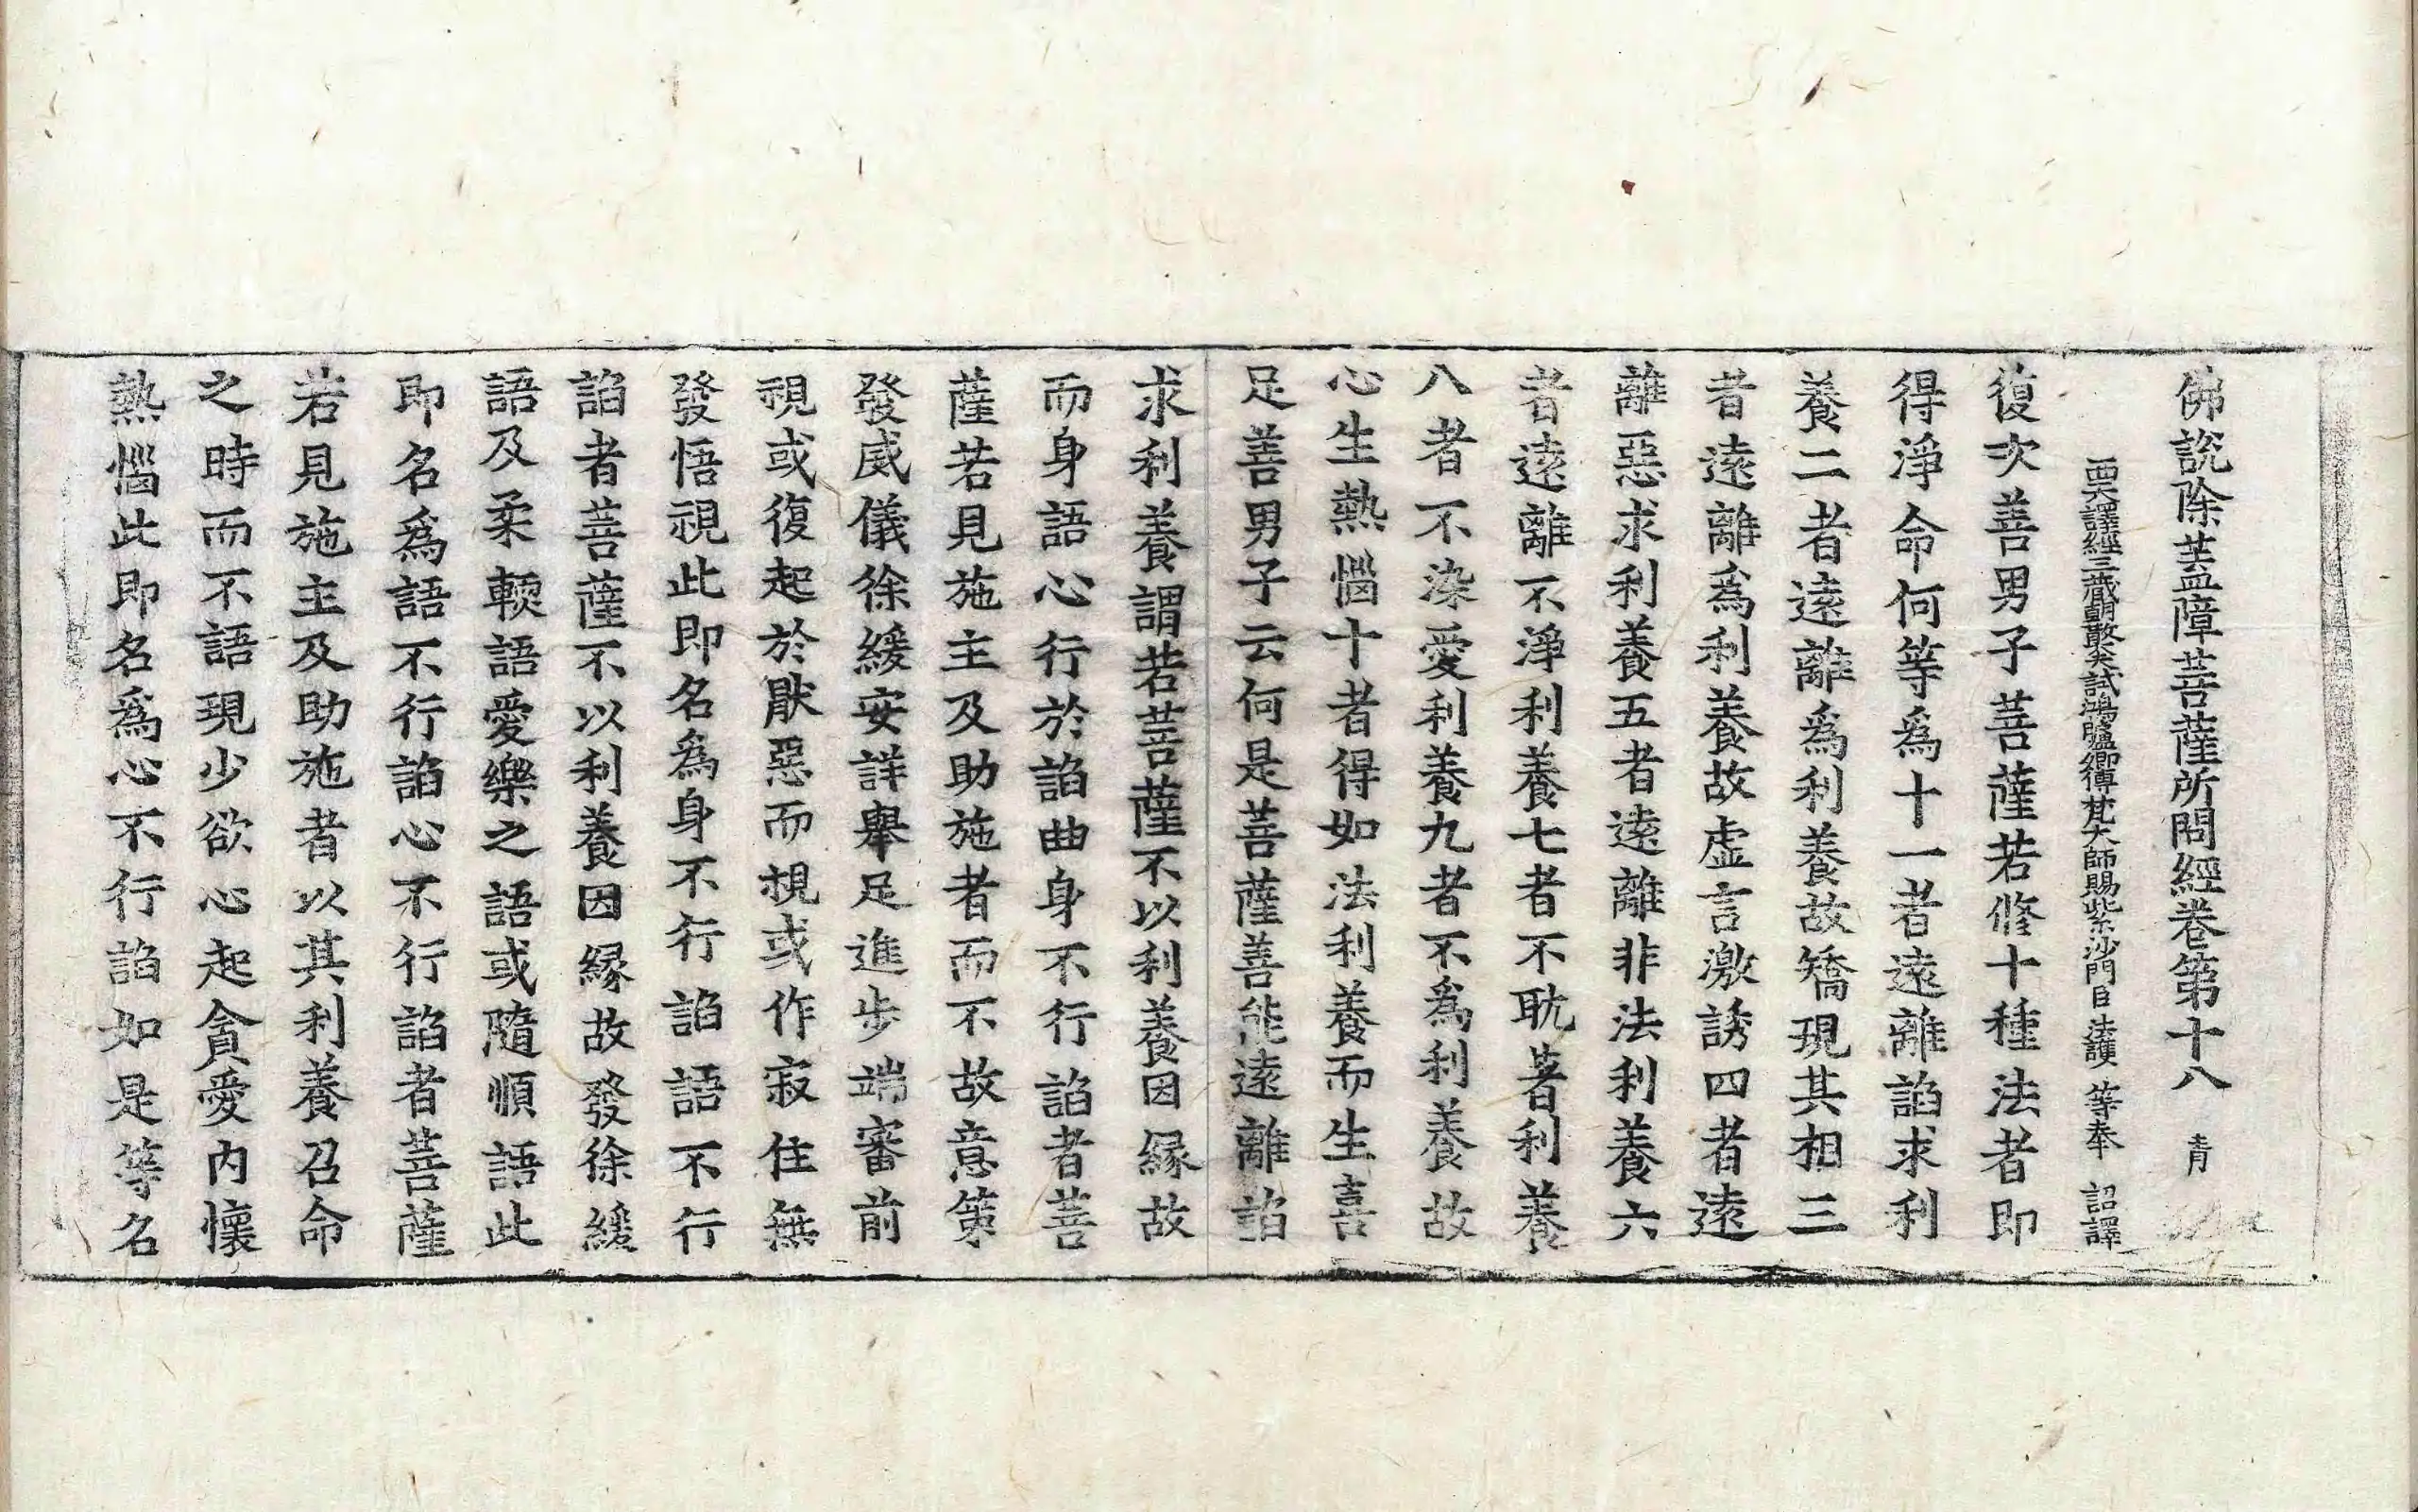 佛說除蓋障菩薩所問經卷第十八　青
西天譯經三藏朝散大夫試鴻臚卿傳梵大師賜紫沙門臣法護等奉　詔譯
復次善男子菩薩若修十種法者即
得淨命何等爲十一者遠離諂求利
養二者遠離爲利養故矯現其相三
者遠離爲利養故虛言激誘四者遠
離惡求利養五者遠離非法利養六
者遠離不淨利養七者不耽著利養
八者不染愛利養九者不爲利養故
心生熱惱十者得如法利養而生喜
足善男子云何是菩薩善能遠離諂
求利養謂若菩薩不以利養因緣故
而身語心行於諂曲身不行諂者菩
薩若見施主及助施者而不故意第
發威儀徐緩安詳舉足進步端審前
視或復起於猒惡而視或作寂住無
發悟視此即名爲身不行諂語不行
諂者菩薩不以利養因緣故發徐緩
語及柔輭語愛樂之語或隨順語此
即名爲語不行諂心不行諂者菩薩
若見施主及助施者以其利養召命
之時而不語現少欲心起貪愛內懷
熱惱此即名爲心不行諂如是等名